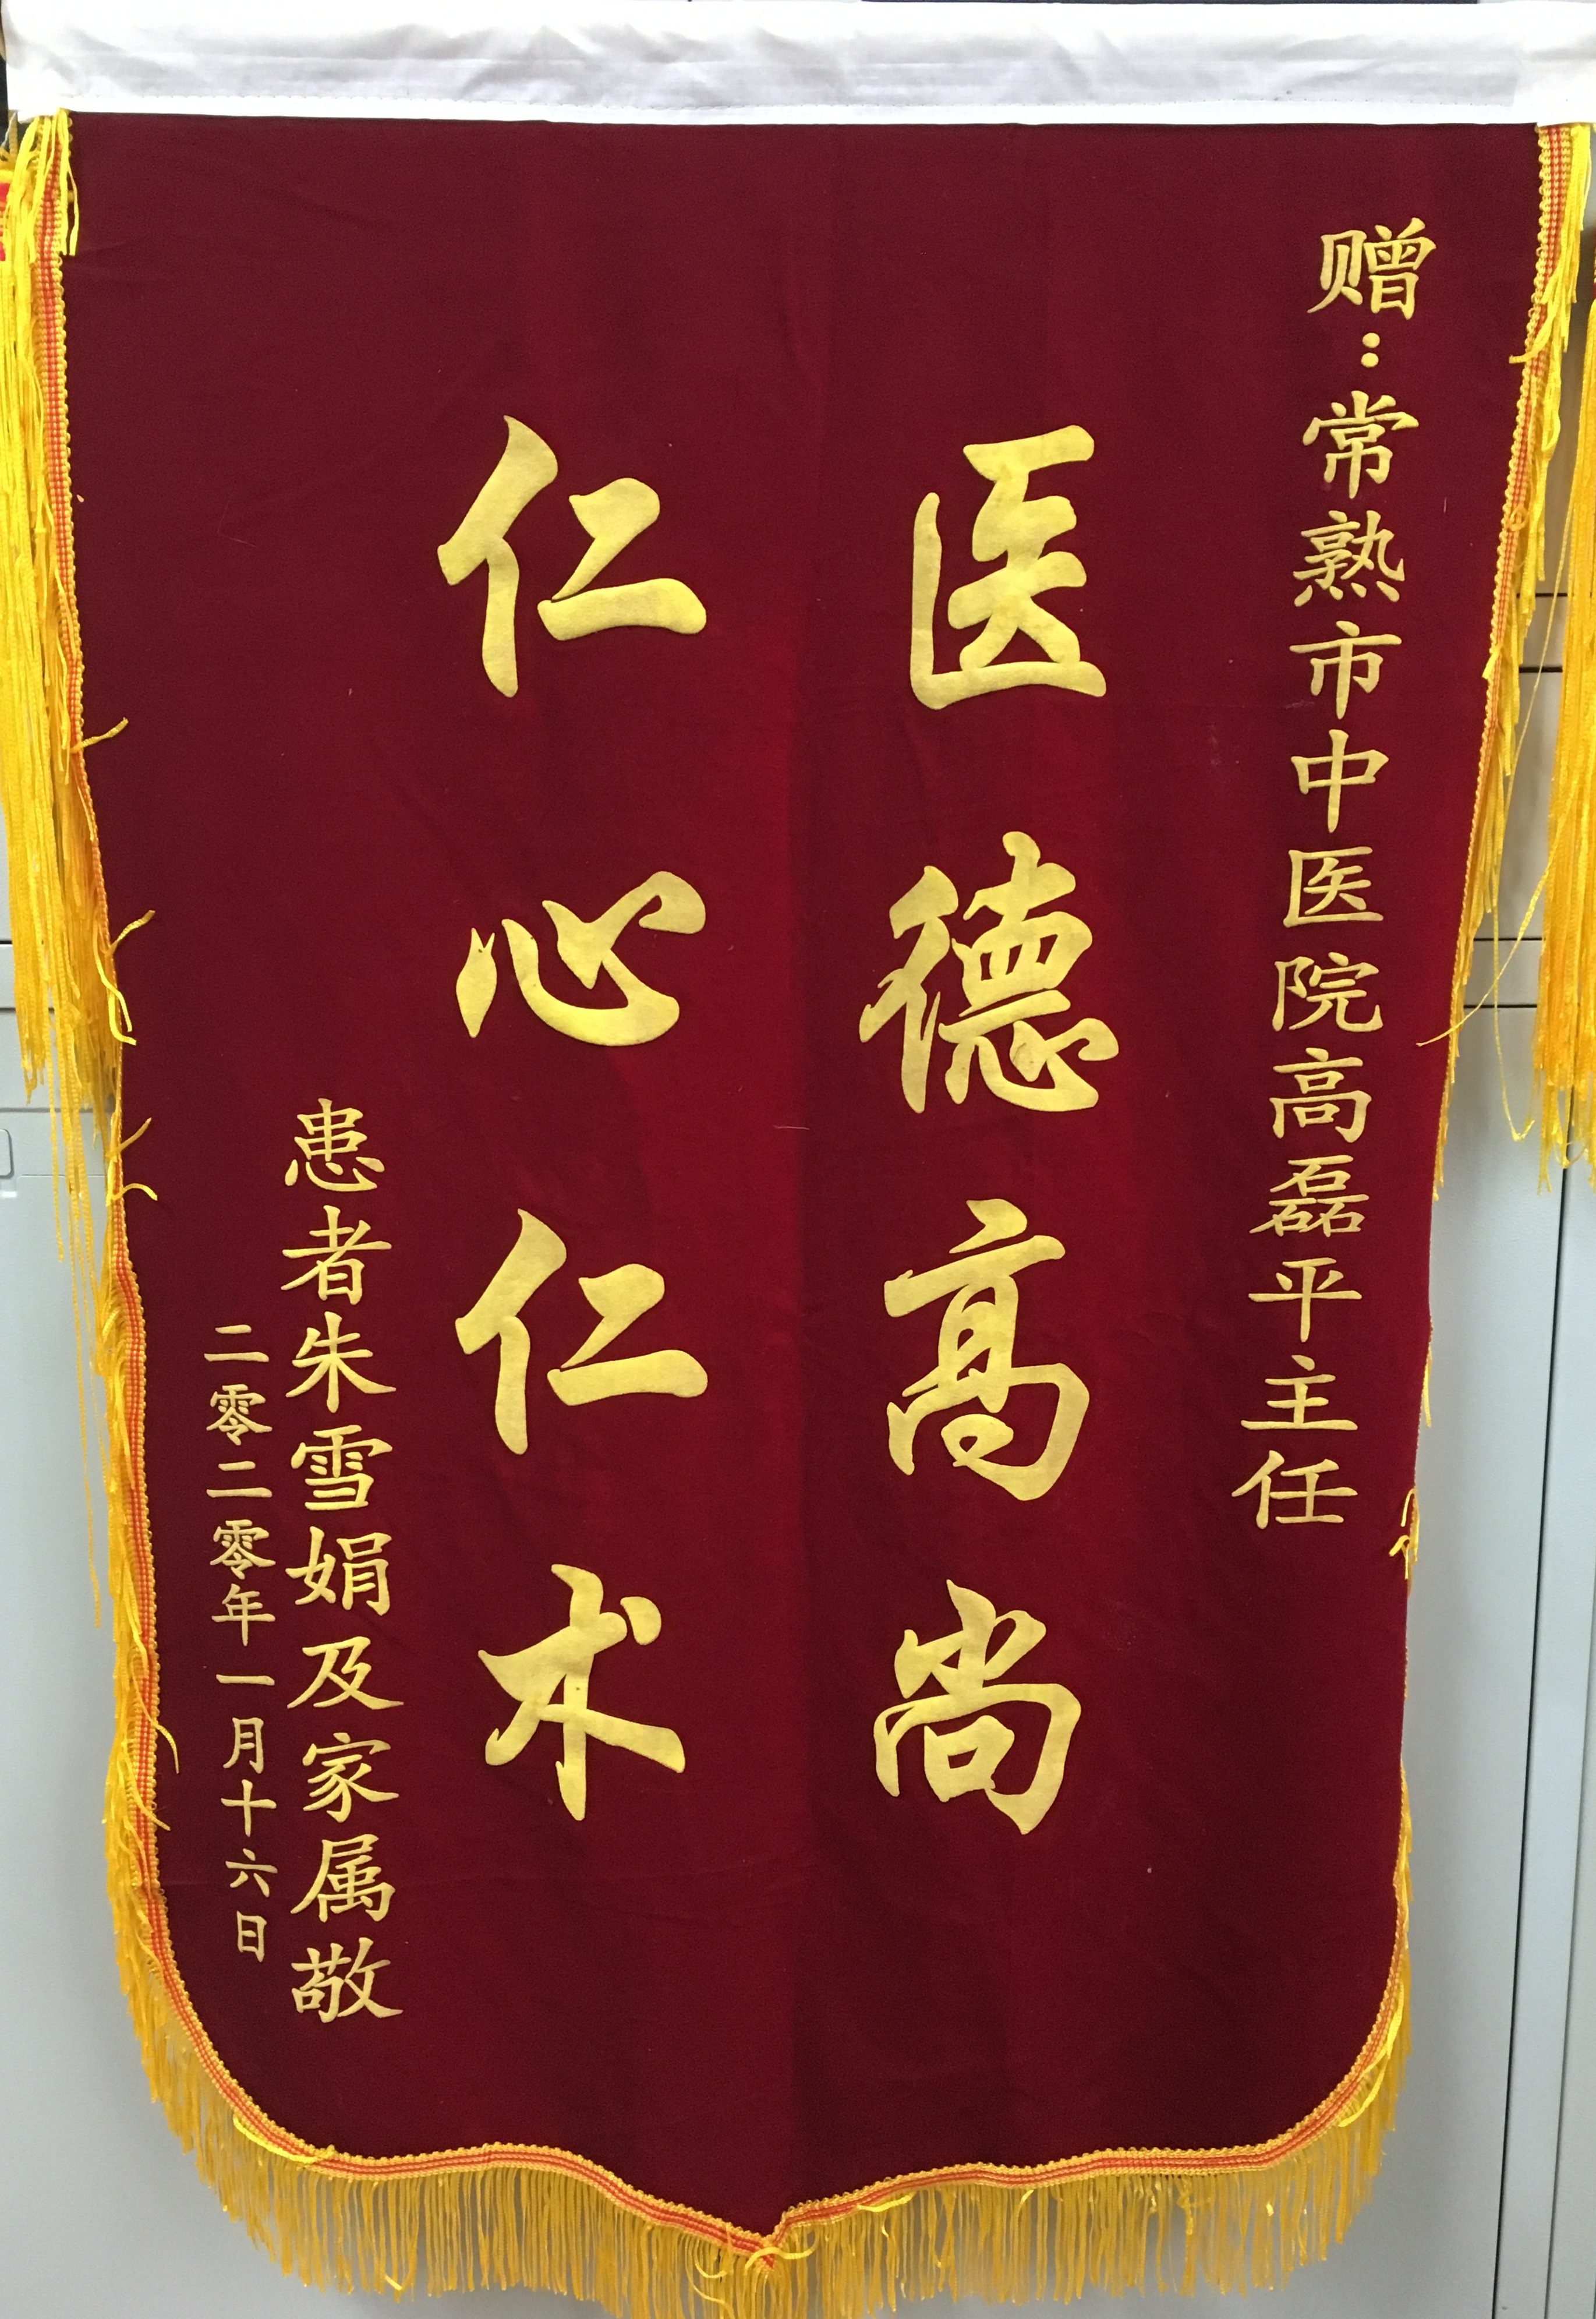 赠:常熟市中医院高磊平主任
医德高尚
仁心仁术
患者朱雪娟及家属敬
二零二零年一月十六日